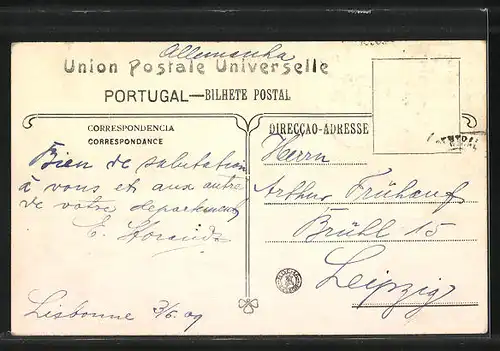 Allemanha
Union Postale Universelle
PORTUGAL—BILHETE POSTAL
CORRESPONDENCIA
CORRESPONDANCE
Bien de salutation
à vous et aux autre
de votre departement
E.
Lisbonne 3/6.09
DIRECÇAO-ADRESSE
Herrn
Arthur Frühauf
Brühl 15
Leipzig